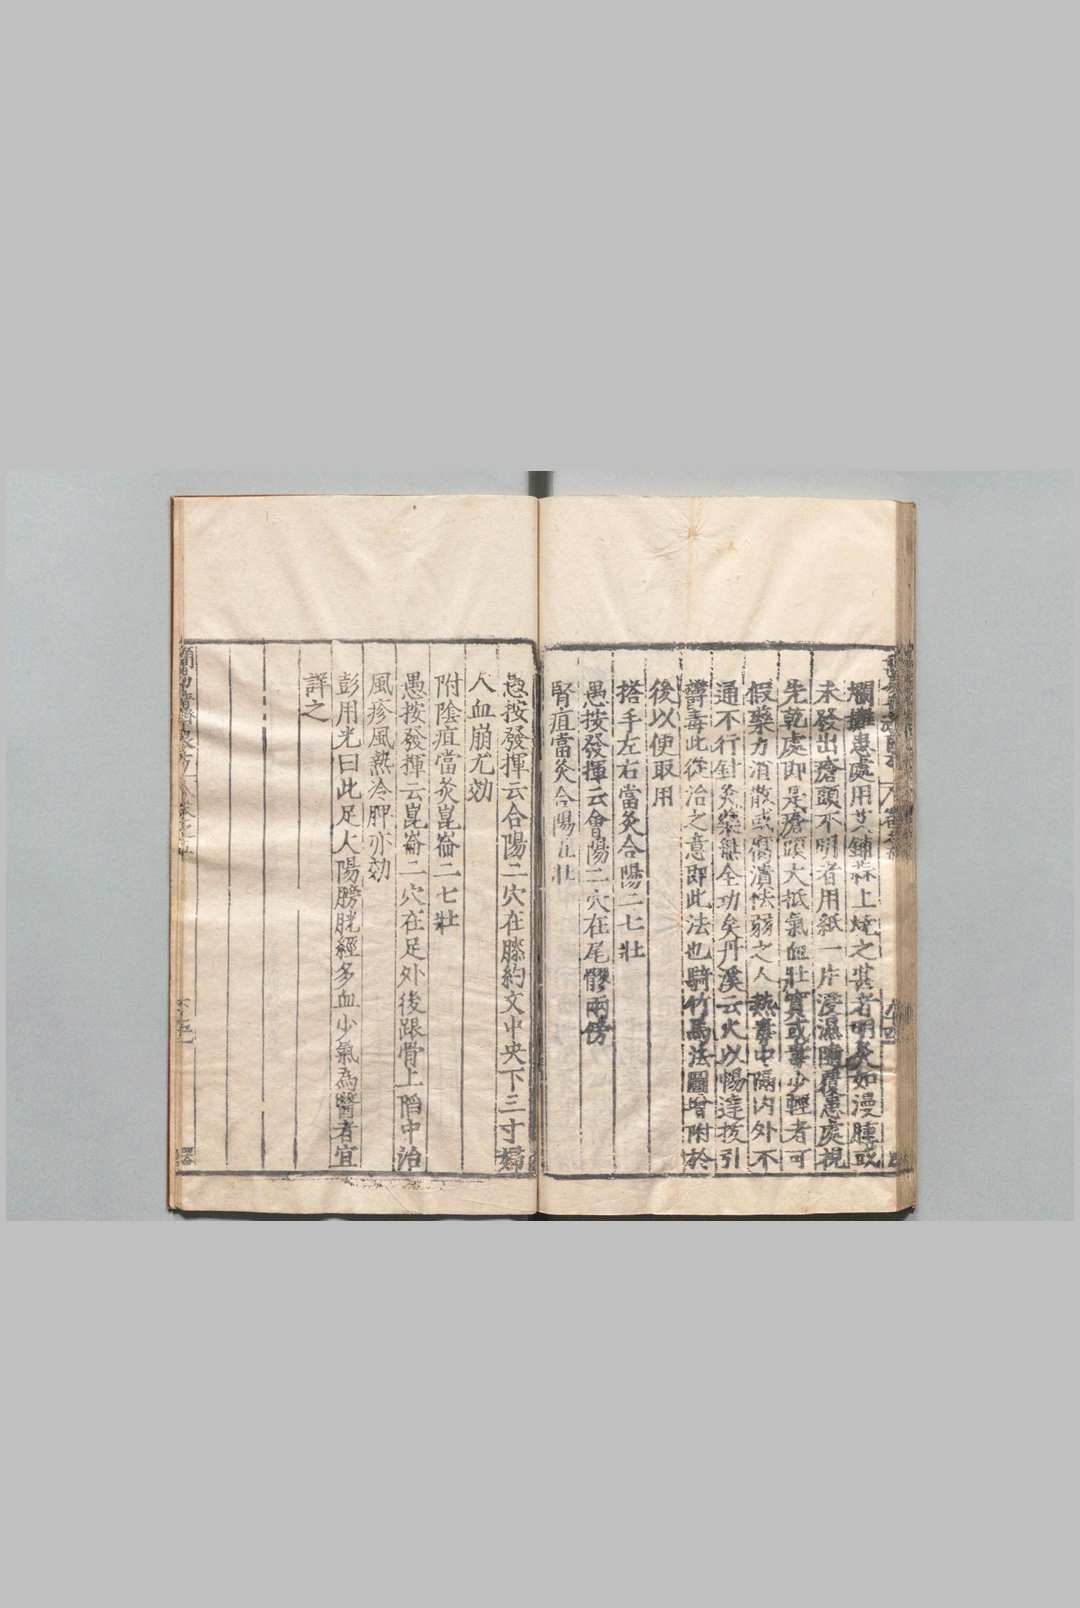 爛攤患處用艾鋪蒜上燒之甚者明灸如漫腫或
未發出瘡頭不明者用紙一片浸濕隨覆患處視
先乾處即是瘡頭大抵氣血壯實或毒少輕者可
假藥力消散或腐潰怯弱之人熱毒中隔內外不
通不行針灸藥無全功矣丹溪云火以暢達拔引
欝毒此從治之意即此法也騎竹馬法圖曾附於
後以便取用
搭手左右當灸合陽二七壯
愚按發揮云會陽二穴在尾髎兩傍
腎疽當灸合陽五壯
愚按發揮云合陽二穴在膝約文中央下三寸婦
人血崩尤効
附陰疽當灸崑崙二七壯
愚按發揮云崑崙二穴在足外後跟骨上陷中治
風疹風熱冷脾亦効
彭用光曰此足太陽膀胱經多血少氣為醫者宜
詳之